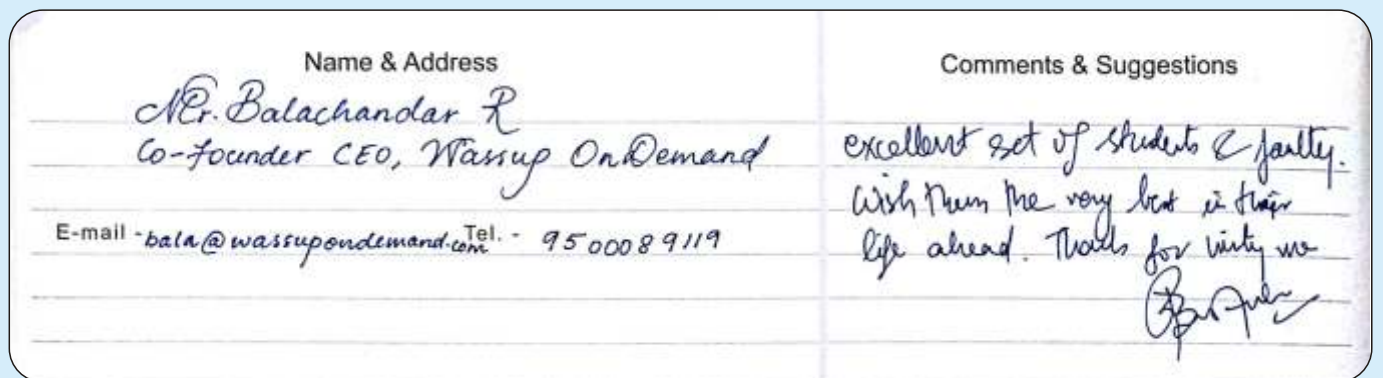 Name & Address
Mr. Balachandar R
Co-founder CEO, Wassup OnDemand
E-mail - bala@wassupondemand.com Tel. - 9500089119
Comments & Suggestions
excellent set of students & faulty.
Wish them the very best in their
life ahead. Thanks for me